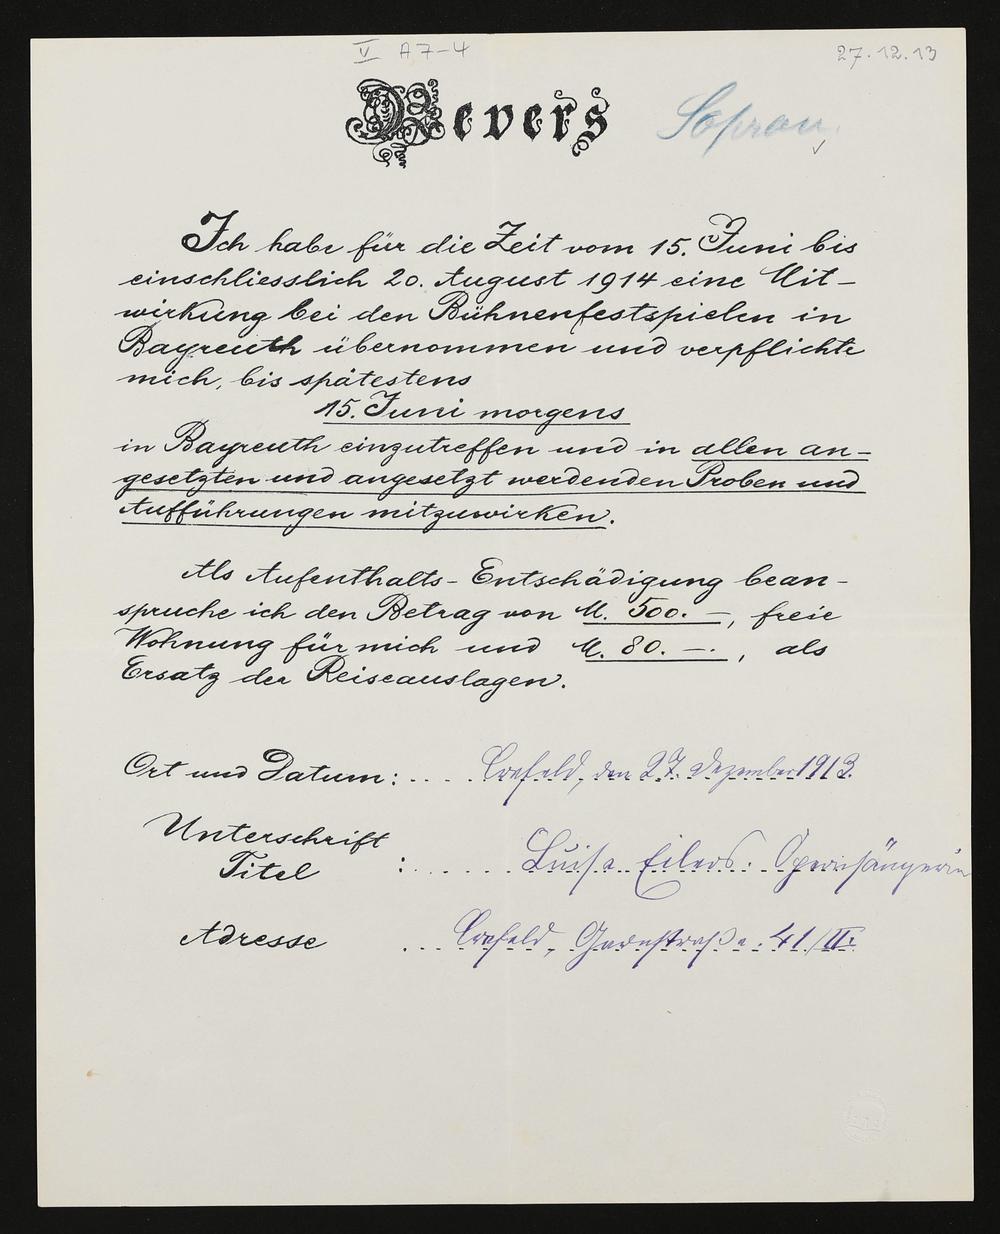 V A7-4
27.12.13
Revers
Sopran.
Ich habe für die Zeit vom 15. Juni bis
einschliesslich 20. August 1914 eine Mit-
wirkung bei den Bühnenfestspielen in
Bayreuth übernommen und verpflichte
mich, bis spätestens
15. Juni morgens
in Bayreuth einzutreffen und in allen an-
gesetzten und angesetzt werdenden Proben und
Aufführungen mitzuwirken.
Als Aufenthalts-Entschädigung bean-
spruche ich den Betrag von M. 500.—, freie
Wohnung für mich und M. 80.—., als
Ersatz der Reiseauslagen.
Ort und Datum: .... Crefeld, den 27. Dezember 1913.
Unterschrift
Titel : ...... Luise Eilers. Opernsängerin
Adresse ... Crefeld, Gartnstraße. 41/II.